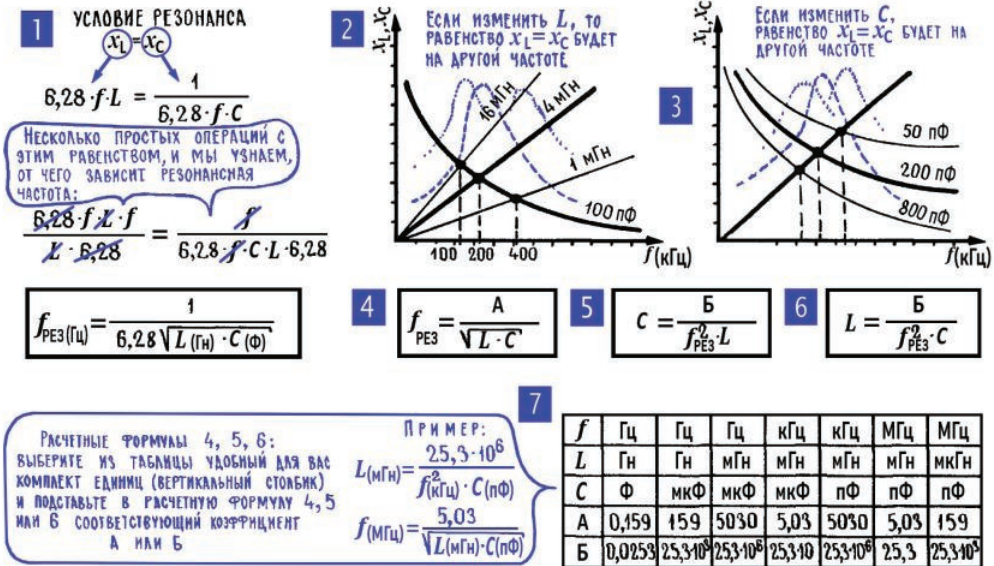 1
УСЛОВИЕ РЕЗОНАНСА
x_L = x_C
6,28·f·L = 1 / 6,28·f·C
НЕСКОЛЬКО ПРОСТЫХ ОПЕРАЦИЙ С
ЭТИМ РАВЕНСТВОМ, И МЫ УЗНАЕМ,
ОТ ЧЕГО ЗАВИСИТ РЕЗОНАНСНАЯ
ЧАСТОТА:
6,28·f·L·f / L·6,28 = f / 6,28·f·C·L·6,28
f РЕЗ(Гц) = 1 / 6,28 √L(Гн)·C(Ф)
2
x_L, x_C
ЕСЛИ ИЗМЕНИТЬ L, ТО
РАВЕНСТВО x_L = x_C БУДЕТ
НА ДРУГОЙ ЧАСТОТЕ
16 мГн
4 мГн
1 мГн
100 пФ
100 200 400
f(кГц)
3
x_L, x_C
ЕСЛИ ИЗМЕНИТЬ C,
РАВЕНСТВО x_L = x_C БУДЕТ НА
ДРУГОЙ ЧАСТОТЕ
50 пФ
200 пФ
800 пФ
f(кГц)
4
f РЕЗ = А / √L·C
5
C = Б / f²РЕЗ·L
6
L = Б / f²РЕЗ·C
РАСЧЕТНЫЕ ФОРМУЛЫ 4, 5, 6:
ВЫБЕРИТЕ ИЗ ТАБЛИЦЫ УДОБНЫЙ ДЛЯ ВАС
КОМПЛЕКТ ЕДИНИЦ (ВЕРТИКАЛЬНЫЙ СТОЛБИК)
И ПОДСТАВЬТЕ В РАСЧЕТНУЮ ФОРМУЛУ 4, 5
ИЛИ 6 СООТВЕТСТВУЮЩИЙ КОЭФФИЦИЕНТ
А ИЛИ Б
ПРИМЕР:
L(мГн) = 25,3·10⁶ / f²(кГц)·C(пФ)
f(МГц) = 5,03 / √L(мГн)·C(пФ)
7
f Гц Гц Гц кГц кГц МГц МГц
L Гн Гн мГн мГн мГн мГн мкГн
C Ф мкФ мкФ мкФ пФ пФ пФ
А 0,159 159 5030 5,03 5030 5,03 159
Б 0,0253 25,3·10³ 25,3·10⁶ 25,3·10 25,3·10⁶ 25,3 25,3·10³